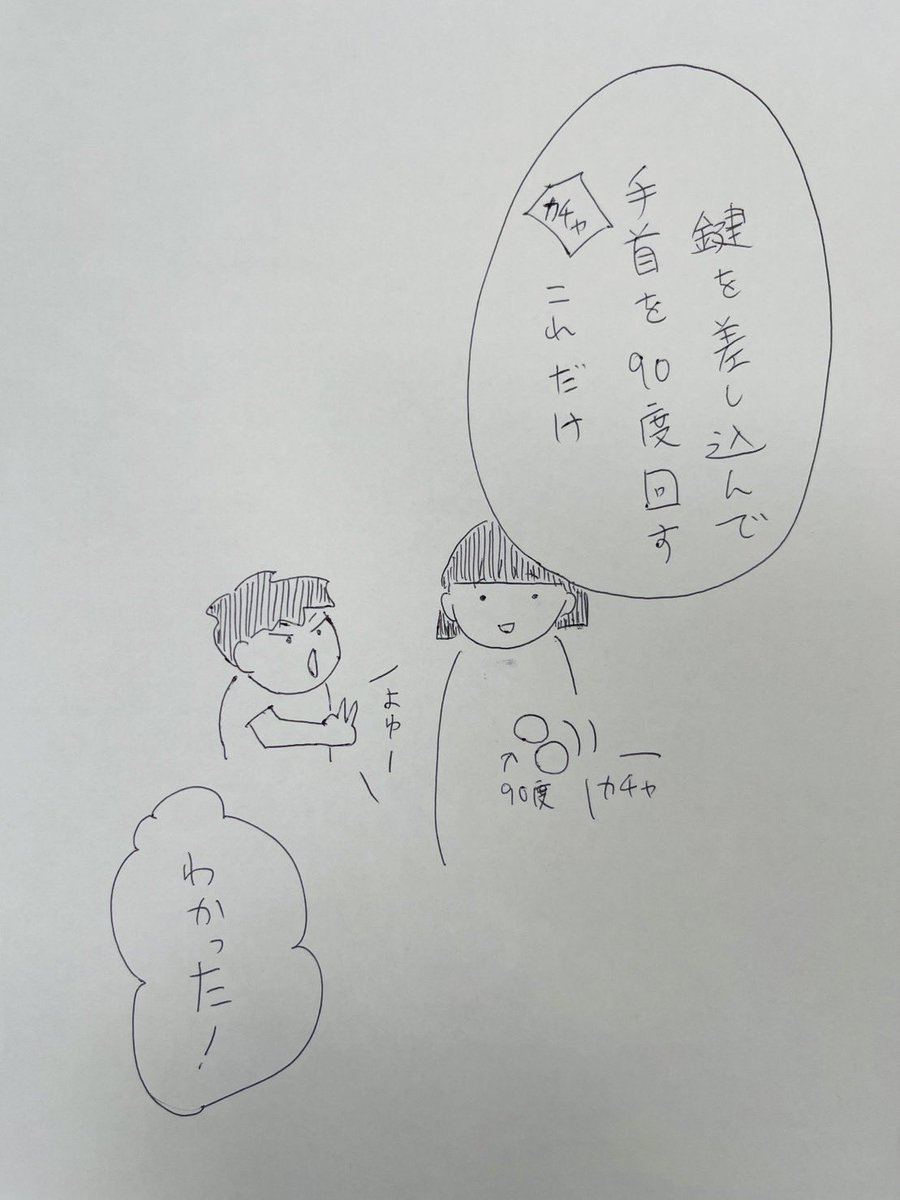 鍵を差し込んで
手首を90度回す
ガチャ これだけ
よゆー
90度
ガチャ
わかった!